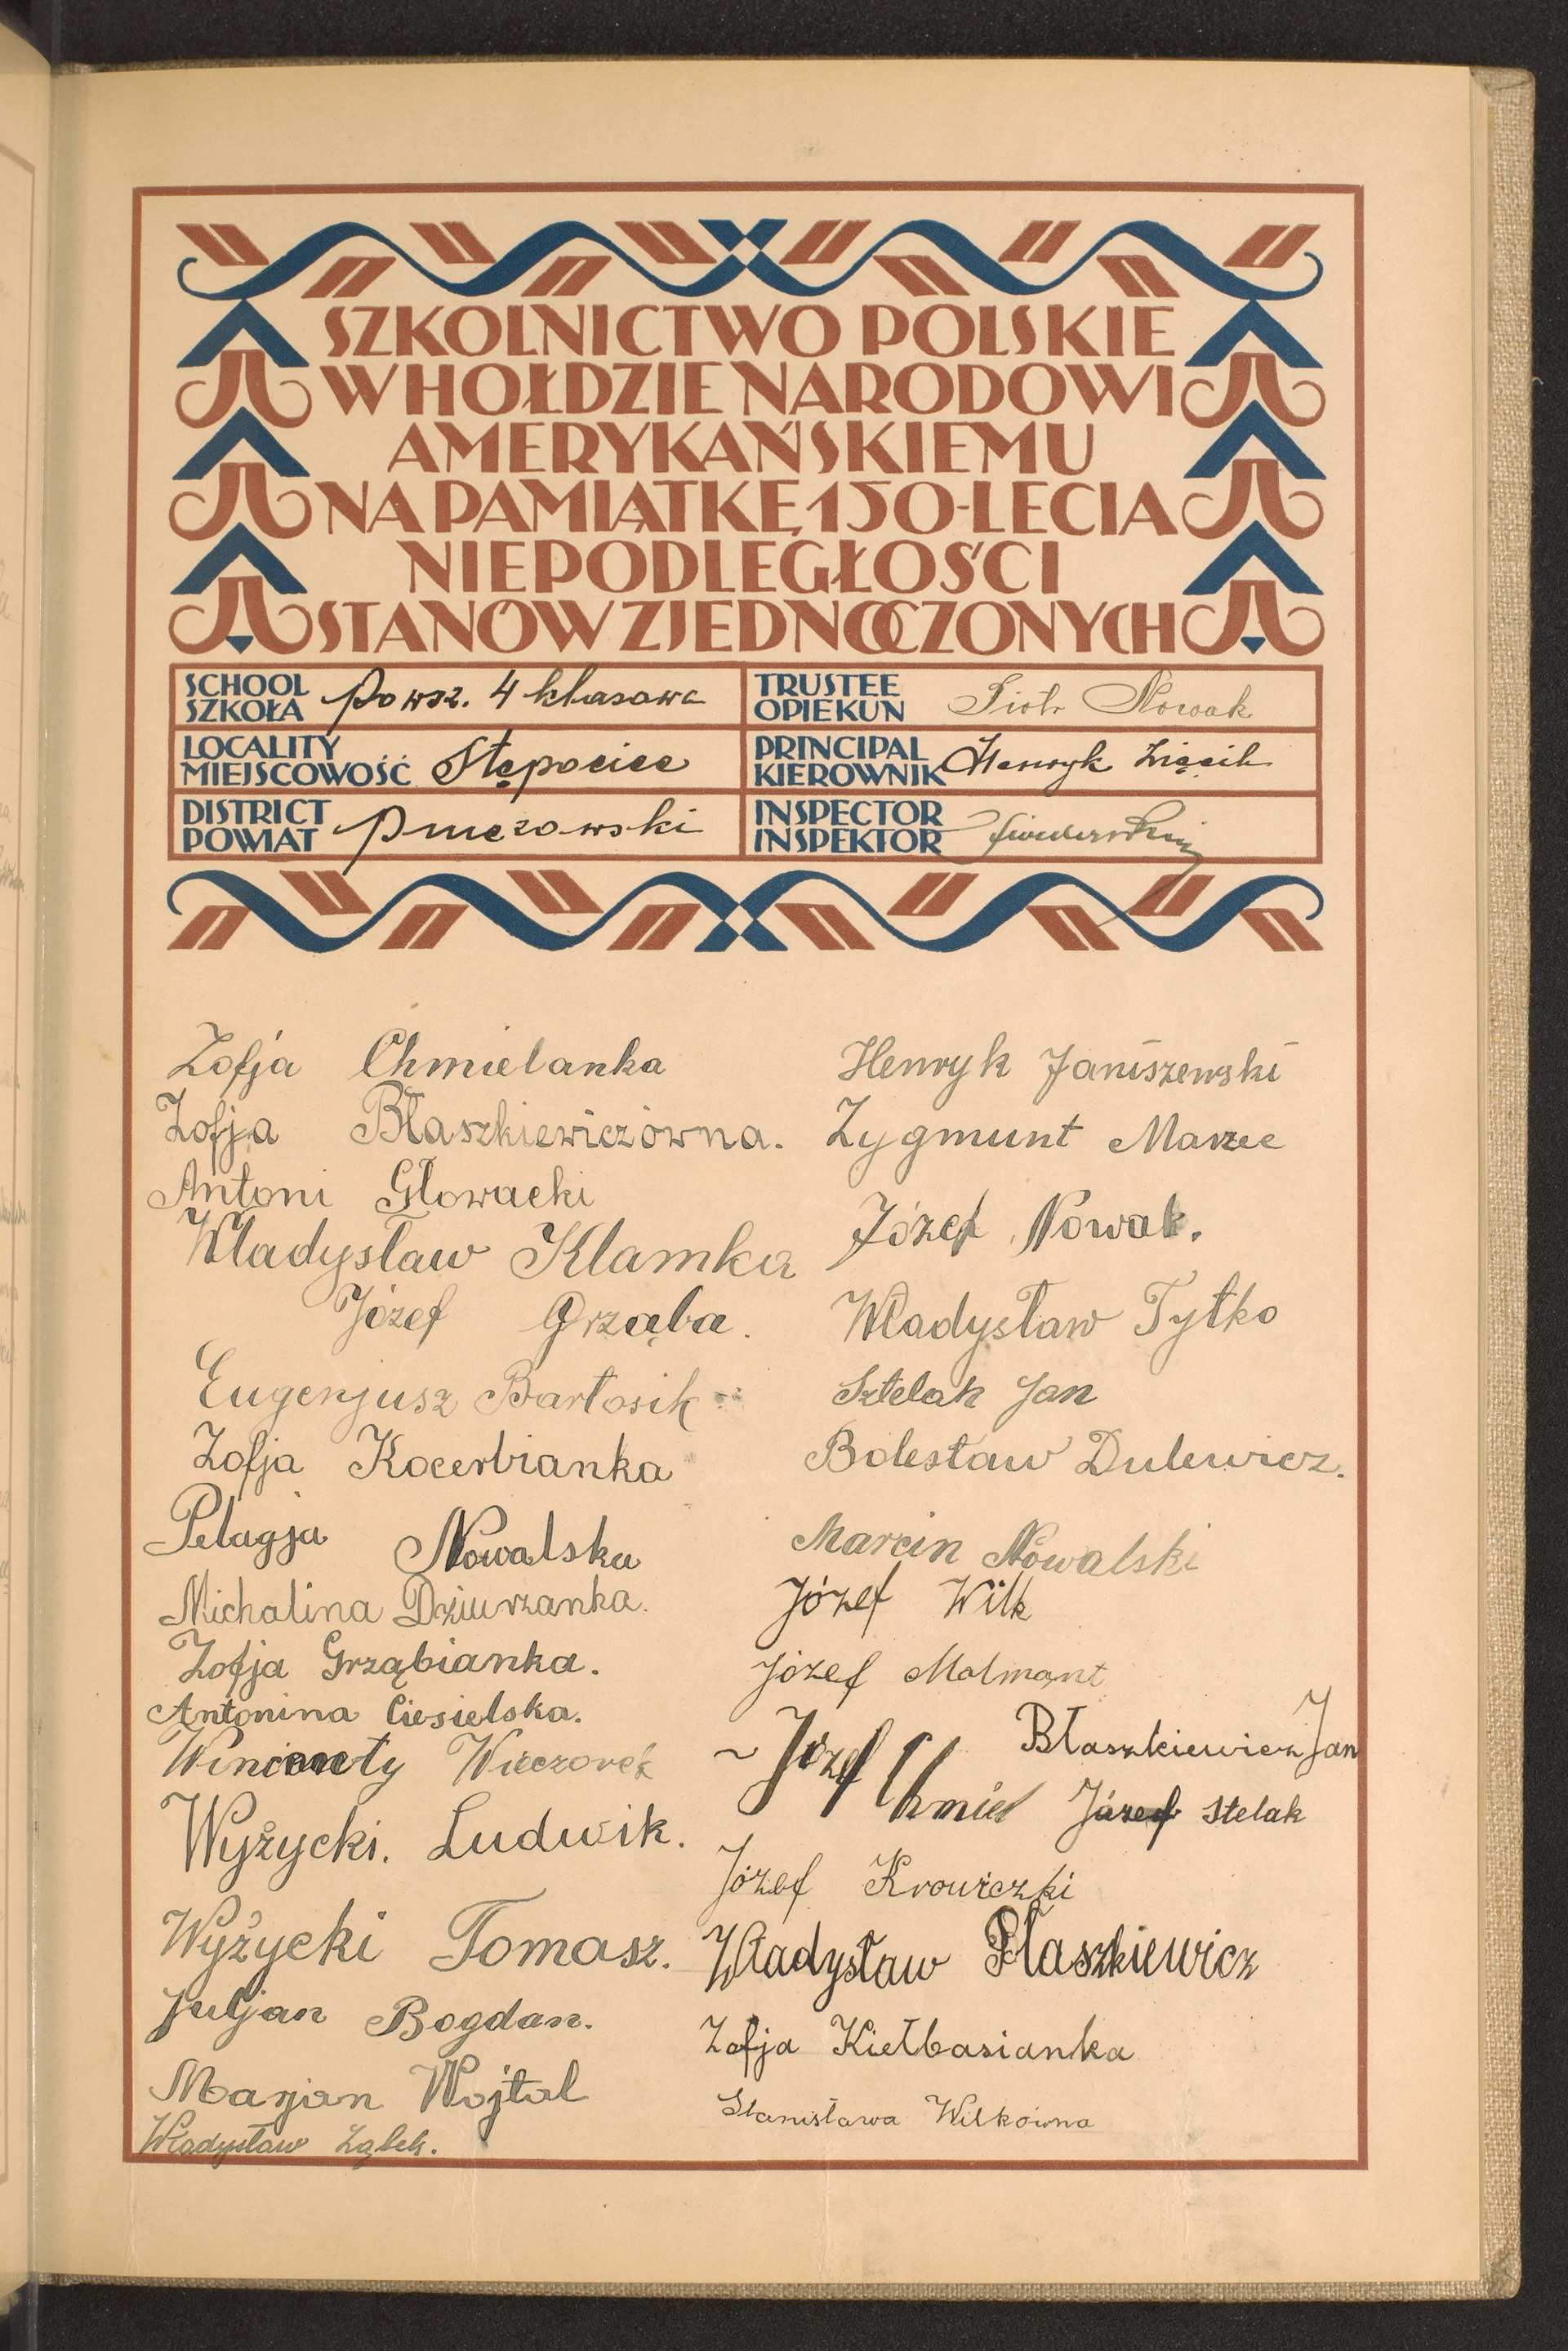 SZKOLNICTWO POLSKIE
W HOŁDZIE NARODOWI
AMERYKAŃSKIEMU
NA PAMIĄTKĘ 150-LECIA
NIEPODLEGŁOŚCI
STANÓW ZJEDNOCZONYCH
SCHOOL
SZKOŁA
Powsz. 4 klasowa
TRUSTEE
OPIEKUN
Piotr Nowak
LOCALITY
MIEJSCOWOŚĆ
Stępocice
PRINCIPAL
KIEROWNIK
Henryk
DISTRICT
POWIAT
Pinczowski
INSPECTOR
INSPEKTOR
Zofja Chmielanka
Zofja Błaszkiewiczówna.
Antoni Głowacki
Władysław Klamka
Józef Grząba.
Eugenjusz Bartosik
Zofja Kocerbianka
Pelagja Nowalska
Michalina Dziurzanka.
Zofja Grząbianka.
Antonina Ciesielska.
Wincenty Wieczorek
Wyżycki. Ludwik.
Wyżycki Tomasz.
Juljan Bogdan.
Marjan Wojtal
Władysław Ząbek.
Henryk Janiszewski
Zygmunt Marzec
Józef Nowak.
Władysław Tytko
Sztelak Jan
Bolesław Dulewicz.
Marcin Nowalski
Józef Wilk
Józef Molmant
Błaszkiewicz Jan
Józef Chmiel
Józef Stelak
Józef Krowiczki
Władysław Błaszkiewicz
Zofja Kiełbasianka
Stanisława Wilkówna